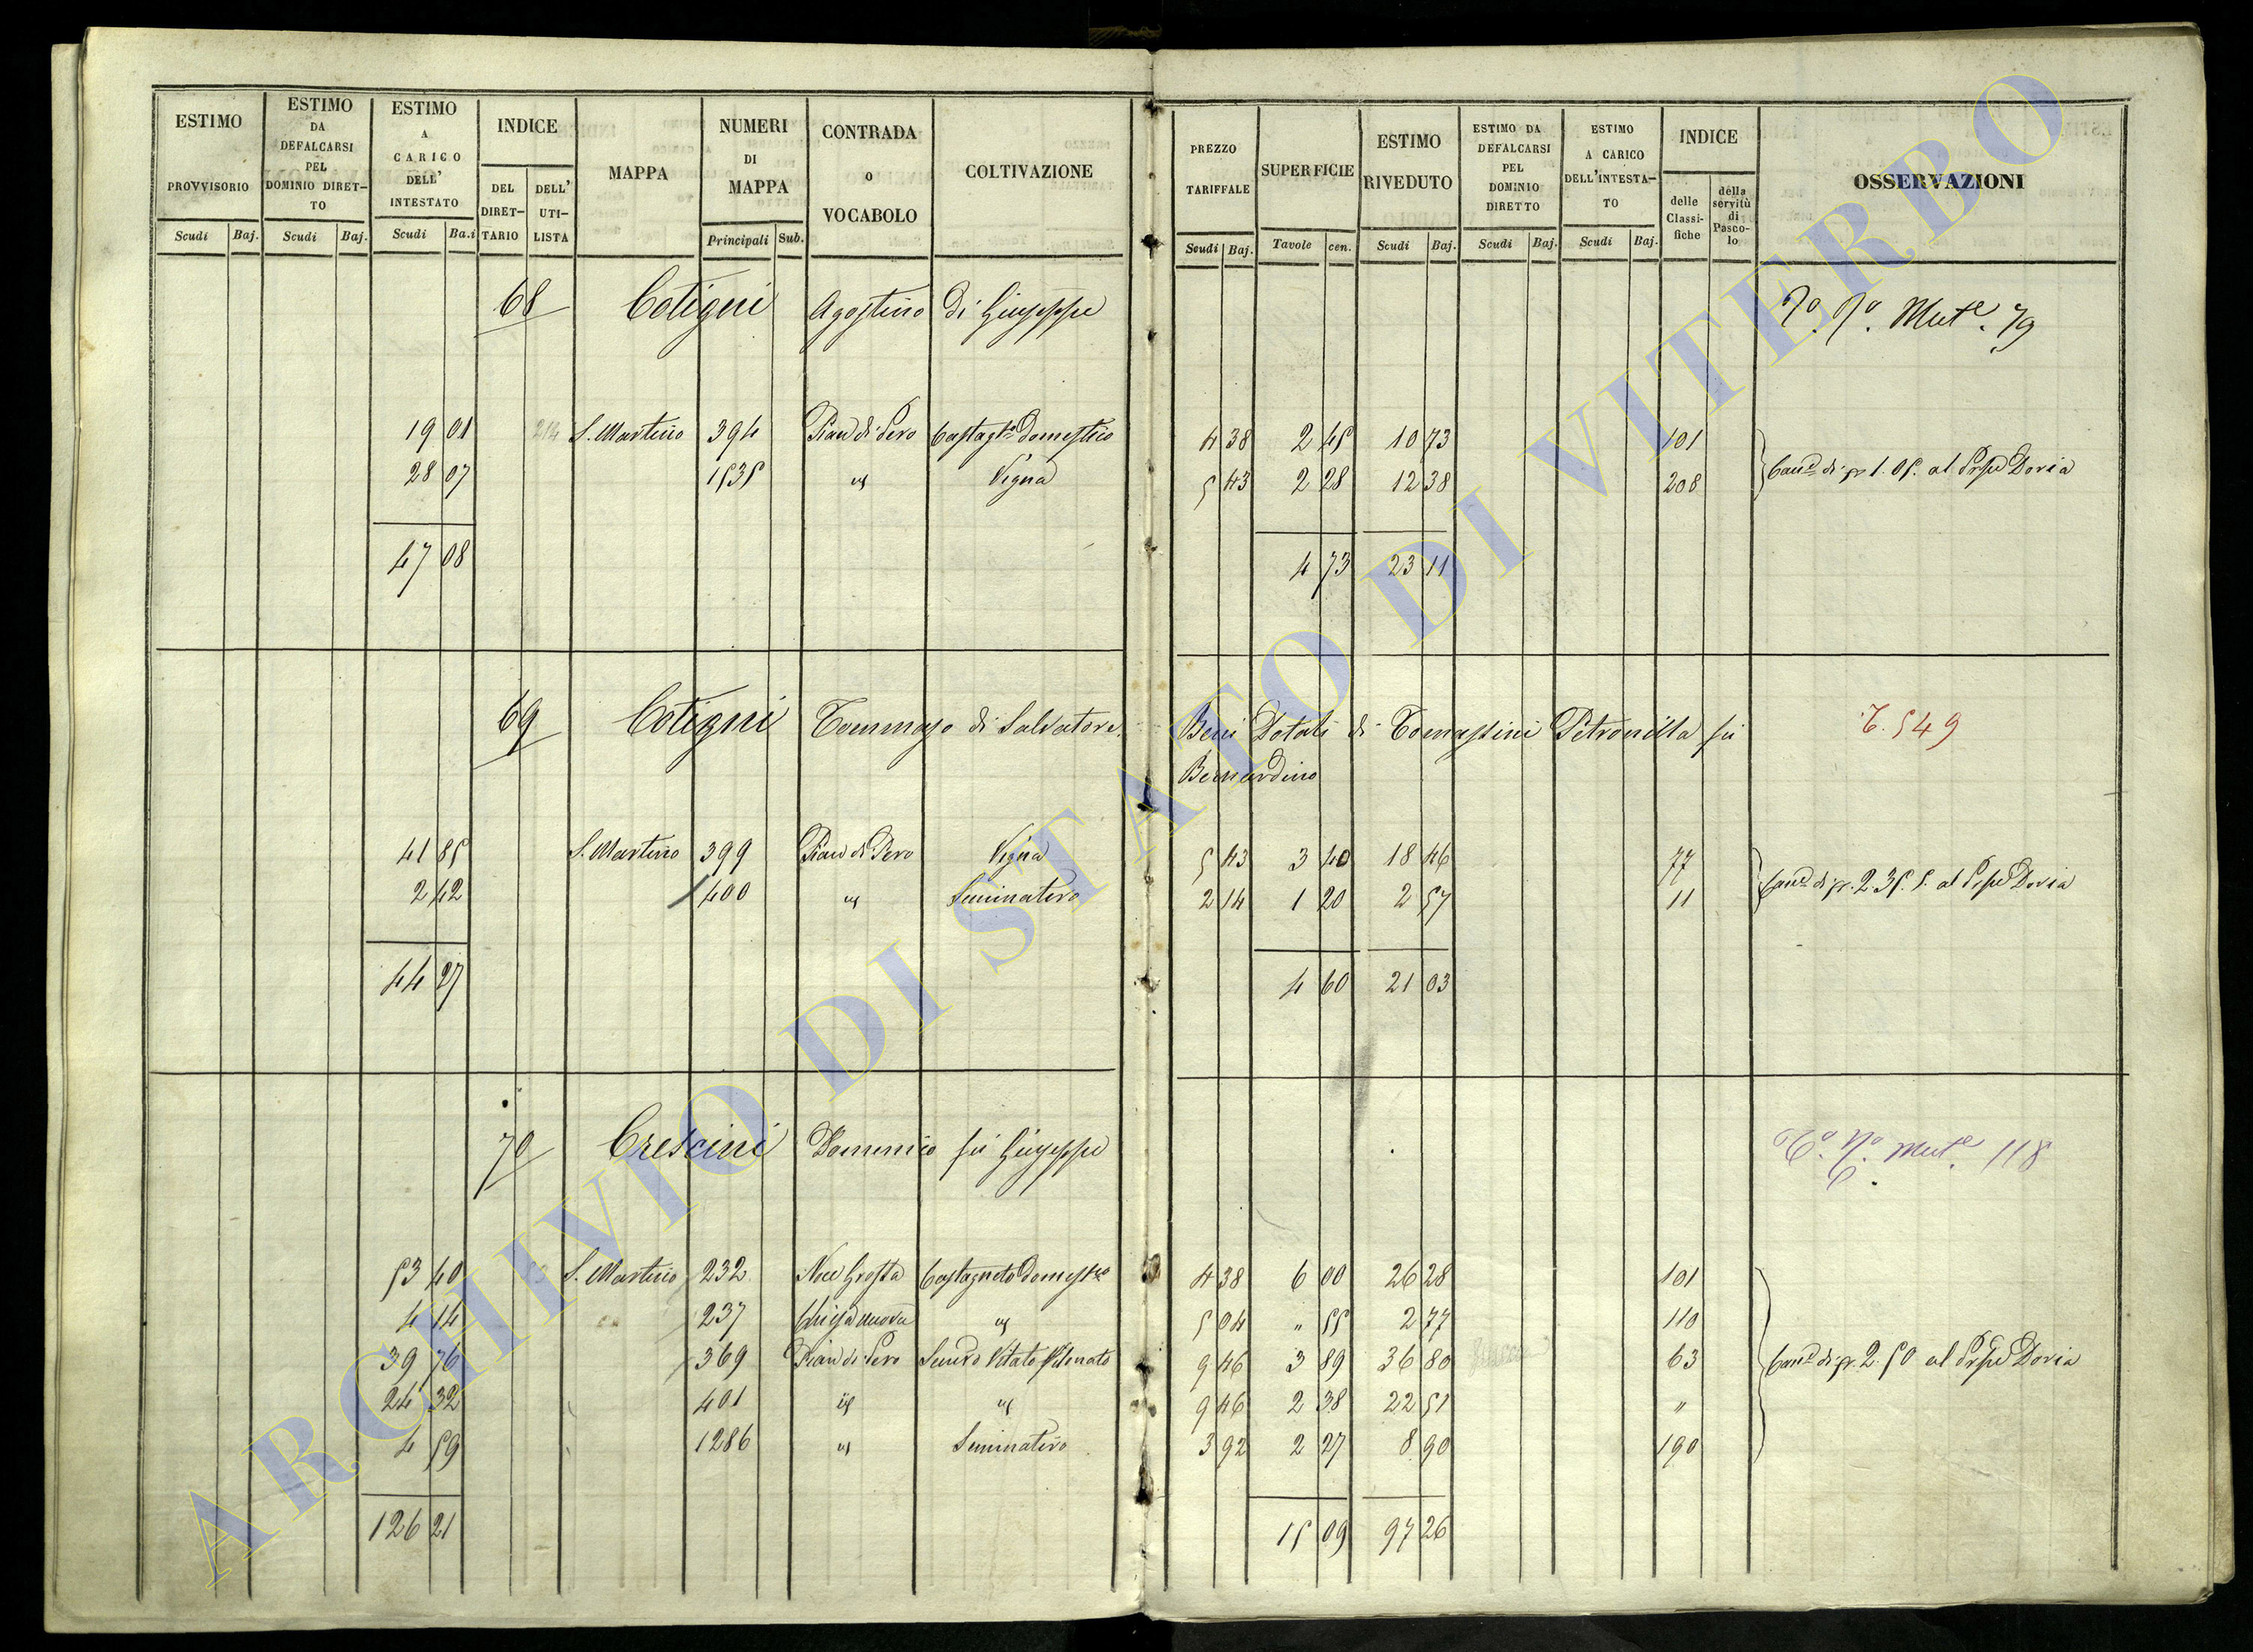 ESTIMO PROVVISORIO Scudi Baj.
ESTIMO DA DEFALCARSI PEL DOMINIO DIRETTO Scudi Baj.
ESTIMO A CARICO DELL' INTESTATO Scudi Ba.i
INDICE DEL DIRET-TARIO DELL' UTI-LISTA
MAPPA
NUMERI DI MAPPA Principali Sub.
CONTRADA O VOCABOLO
COLTIVAZIONE
PREZZO TARIFFALE Scudi Baj.
SUPERFICIE Tavole cen.
ESTIMO RIVEDUTO Scudi Baj.
ESTIMO DA DEFALCARSI PEL DOMINIO DIRETTO Scudi Baj.
ESTIMO A CARICO DELL'INTESTA-TO Scudi Baj.
INDICE delle Classi-fiche della servitù di Pasco-lo
OSSERVAZIONI
68 Cotigni Agostino di Giuseppe Mut.e 79
19 01 214 S. Martino 394 Pian di Pero Castag.to Domestico 4 38 2 45 10 73 101
28 07 1535 id Vigna 5 43 2 28 12 38 208
Can.e di 1. 05. al Pnpe Doria
47 08 4 73 23 11
69 Cotigni Tommaso di Salvatore Beni Dotali di Tomassini Petronilla fu T. 549
Bernardino
41 85 S. Martino 399 Pian di Pero Vigna 5 43 3 40 18 46 77
2 42 400 id Seminativo 2 14 1 20 2 57 11
Can.e di 2. 35. 5. al Pnpe Doria
44 27 4 60 21 03
70 Crescini Domenico fu Giuseppe Mut.e 118
53 40 S. Martino 232 Noce Grossa Castagneto Domest.co 4 38 6 00 26 28 101
4 14 237 Chiesa nuova id 5 04 " 55 2 77 110
39 76 369 Pian di Pero Semvo Vitato Olivato 9 46 3 89 36 80 63
24 32 401 id id 9 46 2 38 22 51 "
4 59 1286 id Seminativo 3 92 2 27 8 90 190
Can.e di 2. 50 al Pnpe Doria
126 21 15 09 97 26
ARCHIVIO DI STATO DI VITERBO